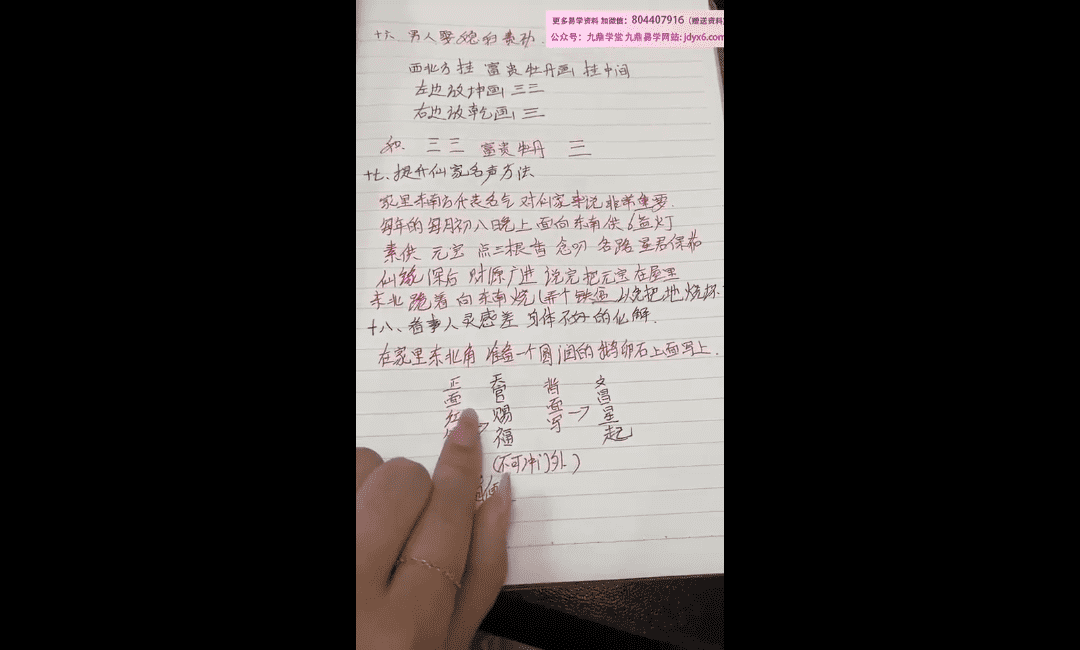 更多易学资料 加微信：804407916（赠送资料）
公众号：九鼎学堂 九鼎易学网站：jdyx6.com
十六 男人娶媳妇责孙
西北方挂 富贵牡丹画 挂中间
左边放坤画 三三
右边放乾画 三
和. 三三 富贵牡丹 三
十七、提升仙家名声方法
家里东南方代表名气 对仙家来说非常重要.
每年的每月初八晚上 面向东南供6盏灯
素供 元宝 点三根香 念叨 各路星君保佑
仙缘深后 财源广进 说完把元宝在屋里
东北跪着向东南烧(弄个铁盆 以免把地烧坏
十八、看事人灵感差 身体不好的化解.
在家里东北角 准备一个圆润的鹅卵石上面写上.
正面红 → 天官赐福
背面写 → 文昌星起
(不可冲门外)